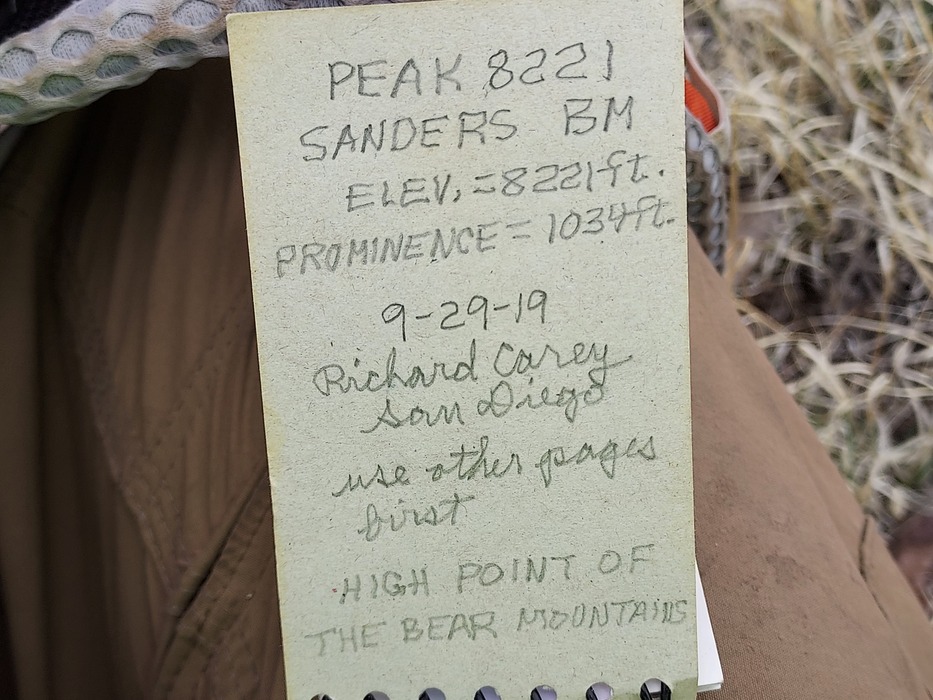 PEAK 8221
SANDERS BM
ELEV. = 8221 ft.
PROMINENCE = 1034 ft.
9-29-19
Richard Carey
San Diego
use other pages
first
HIGH POINT OF
THE BEAR MOUNTAINS